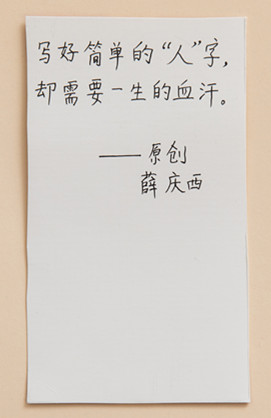 写好简单的“人”字，
却需要一生的血汗。
——原创
薛庆西